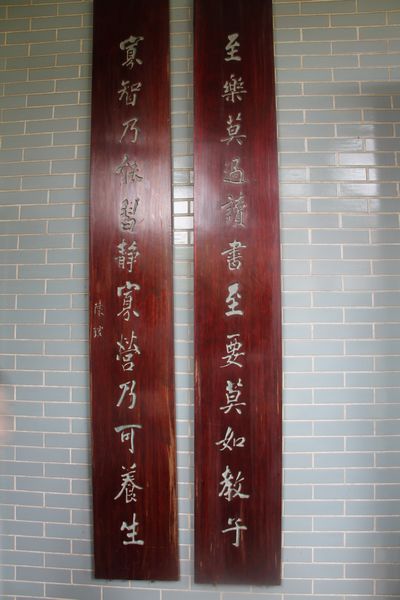 至樂莫過讀書至要莫如教子
寡智乃能習靜寡營乃可養生
陳